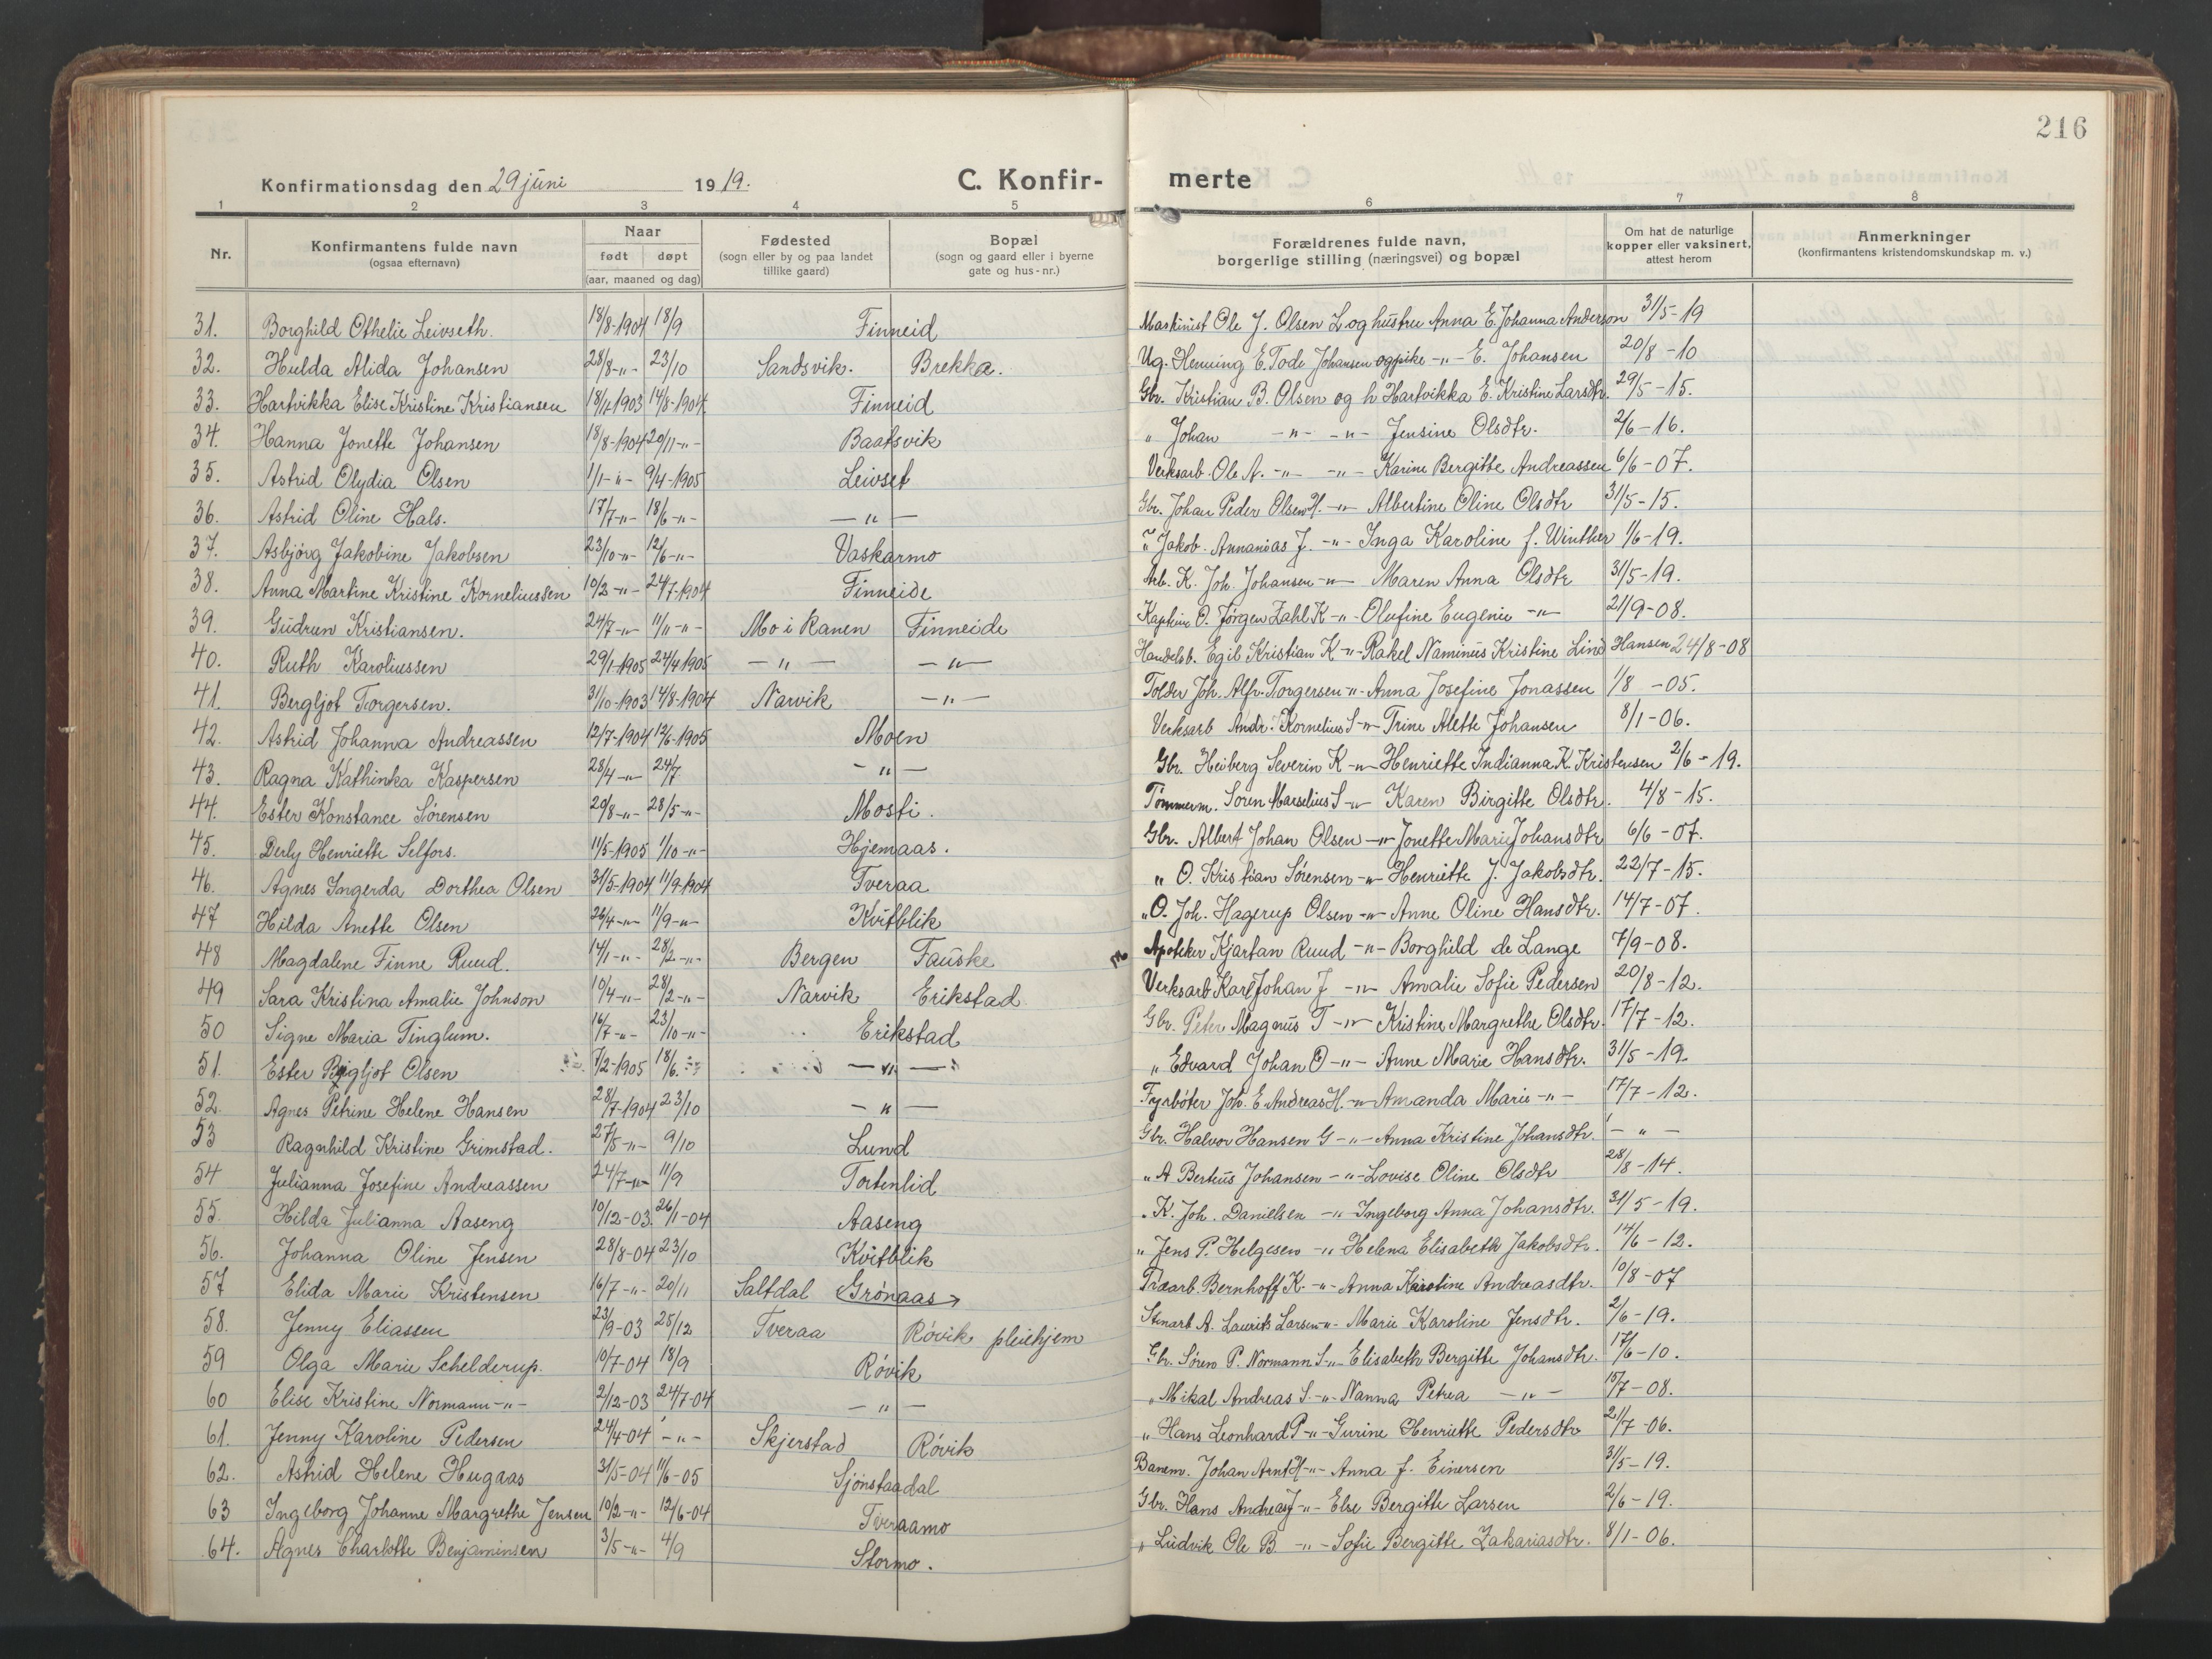 216
Konfirmationsdag den 29 juni 1919. C. Konfirmerte
1 2 3 4 5 6 7 8
Nr. Konfirmantens fulde navn (ogsaa efternavn) Naar født døpt (aar, maaned og dag) Fødested (sogn eller by og paa landet tillike gaard) Bopæl (sogn og gaard eller i byerne gate og hus-nr.) Forældrenes fulde navn, borgerlige stilling (næringsvei) og bopæl Om hat de naturlige kopper eller vaksinert, attest herom Anmerkninger (konfirmantens kristendomskundskap m. v.)
31. Borghild Othelie Leivseth. 18/8-1904 18/9 Finneid Maskinist Ole J. Olsen L og hustru Anna E. Johanna Anderson 31/5-19
32. Hulda Alida Johansen 28/8-"- 23/10 Sandsvik. Brekka. Ug. Henning E. Tode Johansen og pike -"- E. Johansen 20/8-10
33. Hartvikka Elise Kristine Kristiansen 18/11 1903 14/8-1904 Finneid Gbr. Kristian B. Olsen og h Hartvikka E. Kristine Larsdtr. 29/5-15.
34. Hanna Jonette Johansen 18/8-1904 20/11-"- Baatsvik " Johan -"- -"- Jensine Olsdtr. 2/6-16.
35. Astrid Olydia Olsen 1/1-"- 9/4-1905 Leivset Verksarb. Ole A. -"- -"- Karine Bergitte Andreassen 6/6-07.
36. Astrid Oline Hals. 17/7-"- 18/6-"- -"- Gbr. Johan Peder Olsen H. -"- Albertine Oline Olsdtr 31/5-15.
37. Asbjörg Jakobine Jakobsen 23/10-"- 12/6-"- Vaskarmo " Jakob. Annanias J. -"- Inga Karoline f. Winther 1/6-19.
38. Anna Martine Kristine Korneliussen 10/2-"- 24/7-1904 Finneide Arb. K. Joh. Johansen -"- Maren Anna Olsdtr 31/5-19.
39. Gudrun Kristiansen. 24/7-"- 11/11-"- Mo i Ranen Finneide O. Jørgen Zahl K -"- Olufine Eugenie -"- 21/9-08.
40. Ruth Karoliussen 29/1-1905 24/4 1905 -"- -"- Handelsb. Egil Kristian K -"- Rakel Naminus Kristine Lind Hansen 24/8-08
41. Bergljot Torgersen. 31/10-1903 14/8-1904 Narvik -"- Tolder Joh. Alfr. Torgersen -"- Anna Josefine Jonassen 1/8-05.
42. Astrid Johanna Andreassen 12/7-1904 12/6-1905 Moen Verksarb Andr. Kornelius S -"- Trine Alette Johansen 8/1-06.
43. Ragna Kathinka Kaspersen 28/4-"- 24/7 -"- Gbr. Heiberg Severin K -"- Henriette Indianna K. Kristensen 2/6-19.
44. Ester Konstance Sørensen 20/8-"- 28/5-"- Mosti. Tømmerm. Soren Marselius S -"- Karen Birgitte Olsdtr. 4/8-15.
45. Derly Henriette Selfors. 11/5-1905 1/10-"- Hjemaas. Gbr. Albert Johan Olsen -"- Jonette Marie Johansdtr 6/6-07.
46. Agnes Ingerda Dorthea Olsen 31/5-1904 11/9-1904 Tveraa " O. Kristian Sørensen -"- Henriette J. Jakobsdtr. 22/7-15.
47 Hilda Anette Olsen 26/4-"- 11/9-"- Kvitblik " O. Joh. Hagerup Olsen -"- Anne Oline Hansdtr. 14/7-07.
48 Magdalene Finne Ruud. 14/1-"- 28/2-"- Bergen Fauske Apoteker Kjartan Ruud -"- Borghild de Lange 7/9-08.
49 Sara Kristina Amalie Johnson 10/4-"- 28/2-"- Narvik Erikstad Verksarb Karl Johan J -"- Amalie Sofie Pedersen 20/8-12.
50 Signe Maria Tinglum. 16/7-"- 23/10-"- Erikstad Gbr. Peter Magnus T -"- Kristine Margrethe Olsdtr. 17/7-12.
51. Ester Bergljot Olsen 7/2-1905 18/6. -"- " Edvard Johan O -"- Anne Marie Hansdtr. 31/5-19.
52. Agnes Petrine Helene Hansen 28/7-1904 23/10 -"- Fyrbøter Joh. E. Andreas H. -"- Amanda Marie -"- 17/7-12.
53 Ragnhild Kristine Grimstad. 27/5-"- 9/10 Lund Gbr. Halvor Hansen G -"- Anna Kristine Johansdtr. -"-
54 Julianna Josefine Andreassen 24/7-"- 11/9 Tortenlid " A Berteus Johansen -"- Lovise Oline Olsdtr 28/8-14.
55. Hilda Julianna Aaseng 10/12-03. 26/1-04 Aaseng " K. Joh. Danielsen -"- Ingeborg Anna Johansdtr. 31/5-19.
56. Johanna Oline Jensen 28/8-04 23/10 Kvitblik " Jens P. Helgesen -"- Helena Elisabeth Jakobsdtr. 14/6-12.
57 Elida Marie Kristensen 16/7-"- 20/11 Saltdal Grønaas Træarb. Bernhoff K. -"- Anna Karoline Andreasdtr. 10/8-07
58. Jenny Eliassen 23/9-03 25/12 Tveraa Rövik pleiehjem Stenarb A. Laurits Larsen -"- Marie Karoline Jensdtr. 2/6-19.
59 Olga Marie Schelderup. 10/7-04 18/9 Røvik Gbr. Søren P. Normann S -"- Elisabeth Bergitte Johansdtr. 17/6-10.
60 Elise Kristine Normann -"- 2/12-03 24/7-04 -"- " Mikal Andreas S. -"- Nanna Petrea -"- 15/7-08.
61. Jenny Karoline Pedersen 24/4-04 -"- Skjerstad Røvik " Hans Leonhard P -"- Gurine Henriette Pedersdtr 21/7-06.
62. Astrid Helene Hugaas 31/5-04 11/6-05 Sjønstaadal Banem. Johan Arnt H -"- Anna f. Einersen 31/5-19.
63 Ingeborg Johanne Margrethe Jensen 10/2-"- 12/6-04 Tveraamo Gbr. Hans Andreas J -"- Else Bergitte Larsen 2/6-19.
64. Agnes Charlotte Benjaminsen 3/5-"- 4/9 Stormo. " Ludvik Ole B -"- Sofie Bergitte Zakariasdtr. 8/1-06.